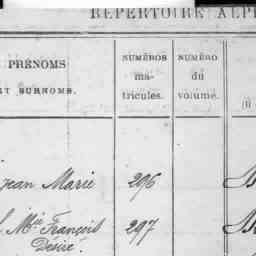 RÉPERTOIRE ALP
PRÉNOMS
ET SURNOMS.
NUMÉROS
ma-
tricules.
NUMÉRO
du
volume.
Jean Marie 296
Mie François 297
Désiré.